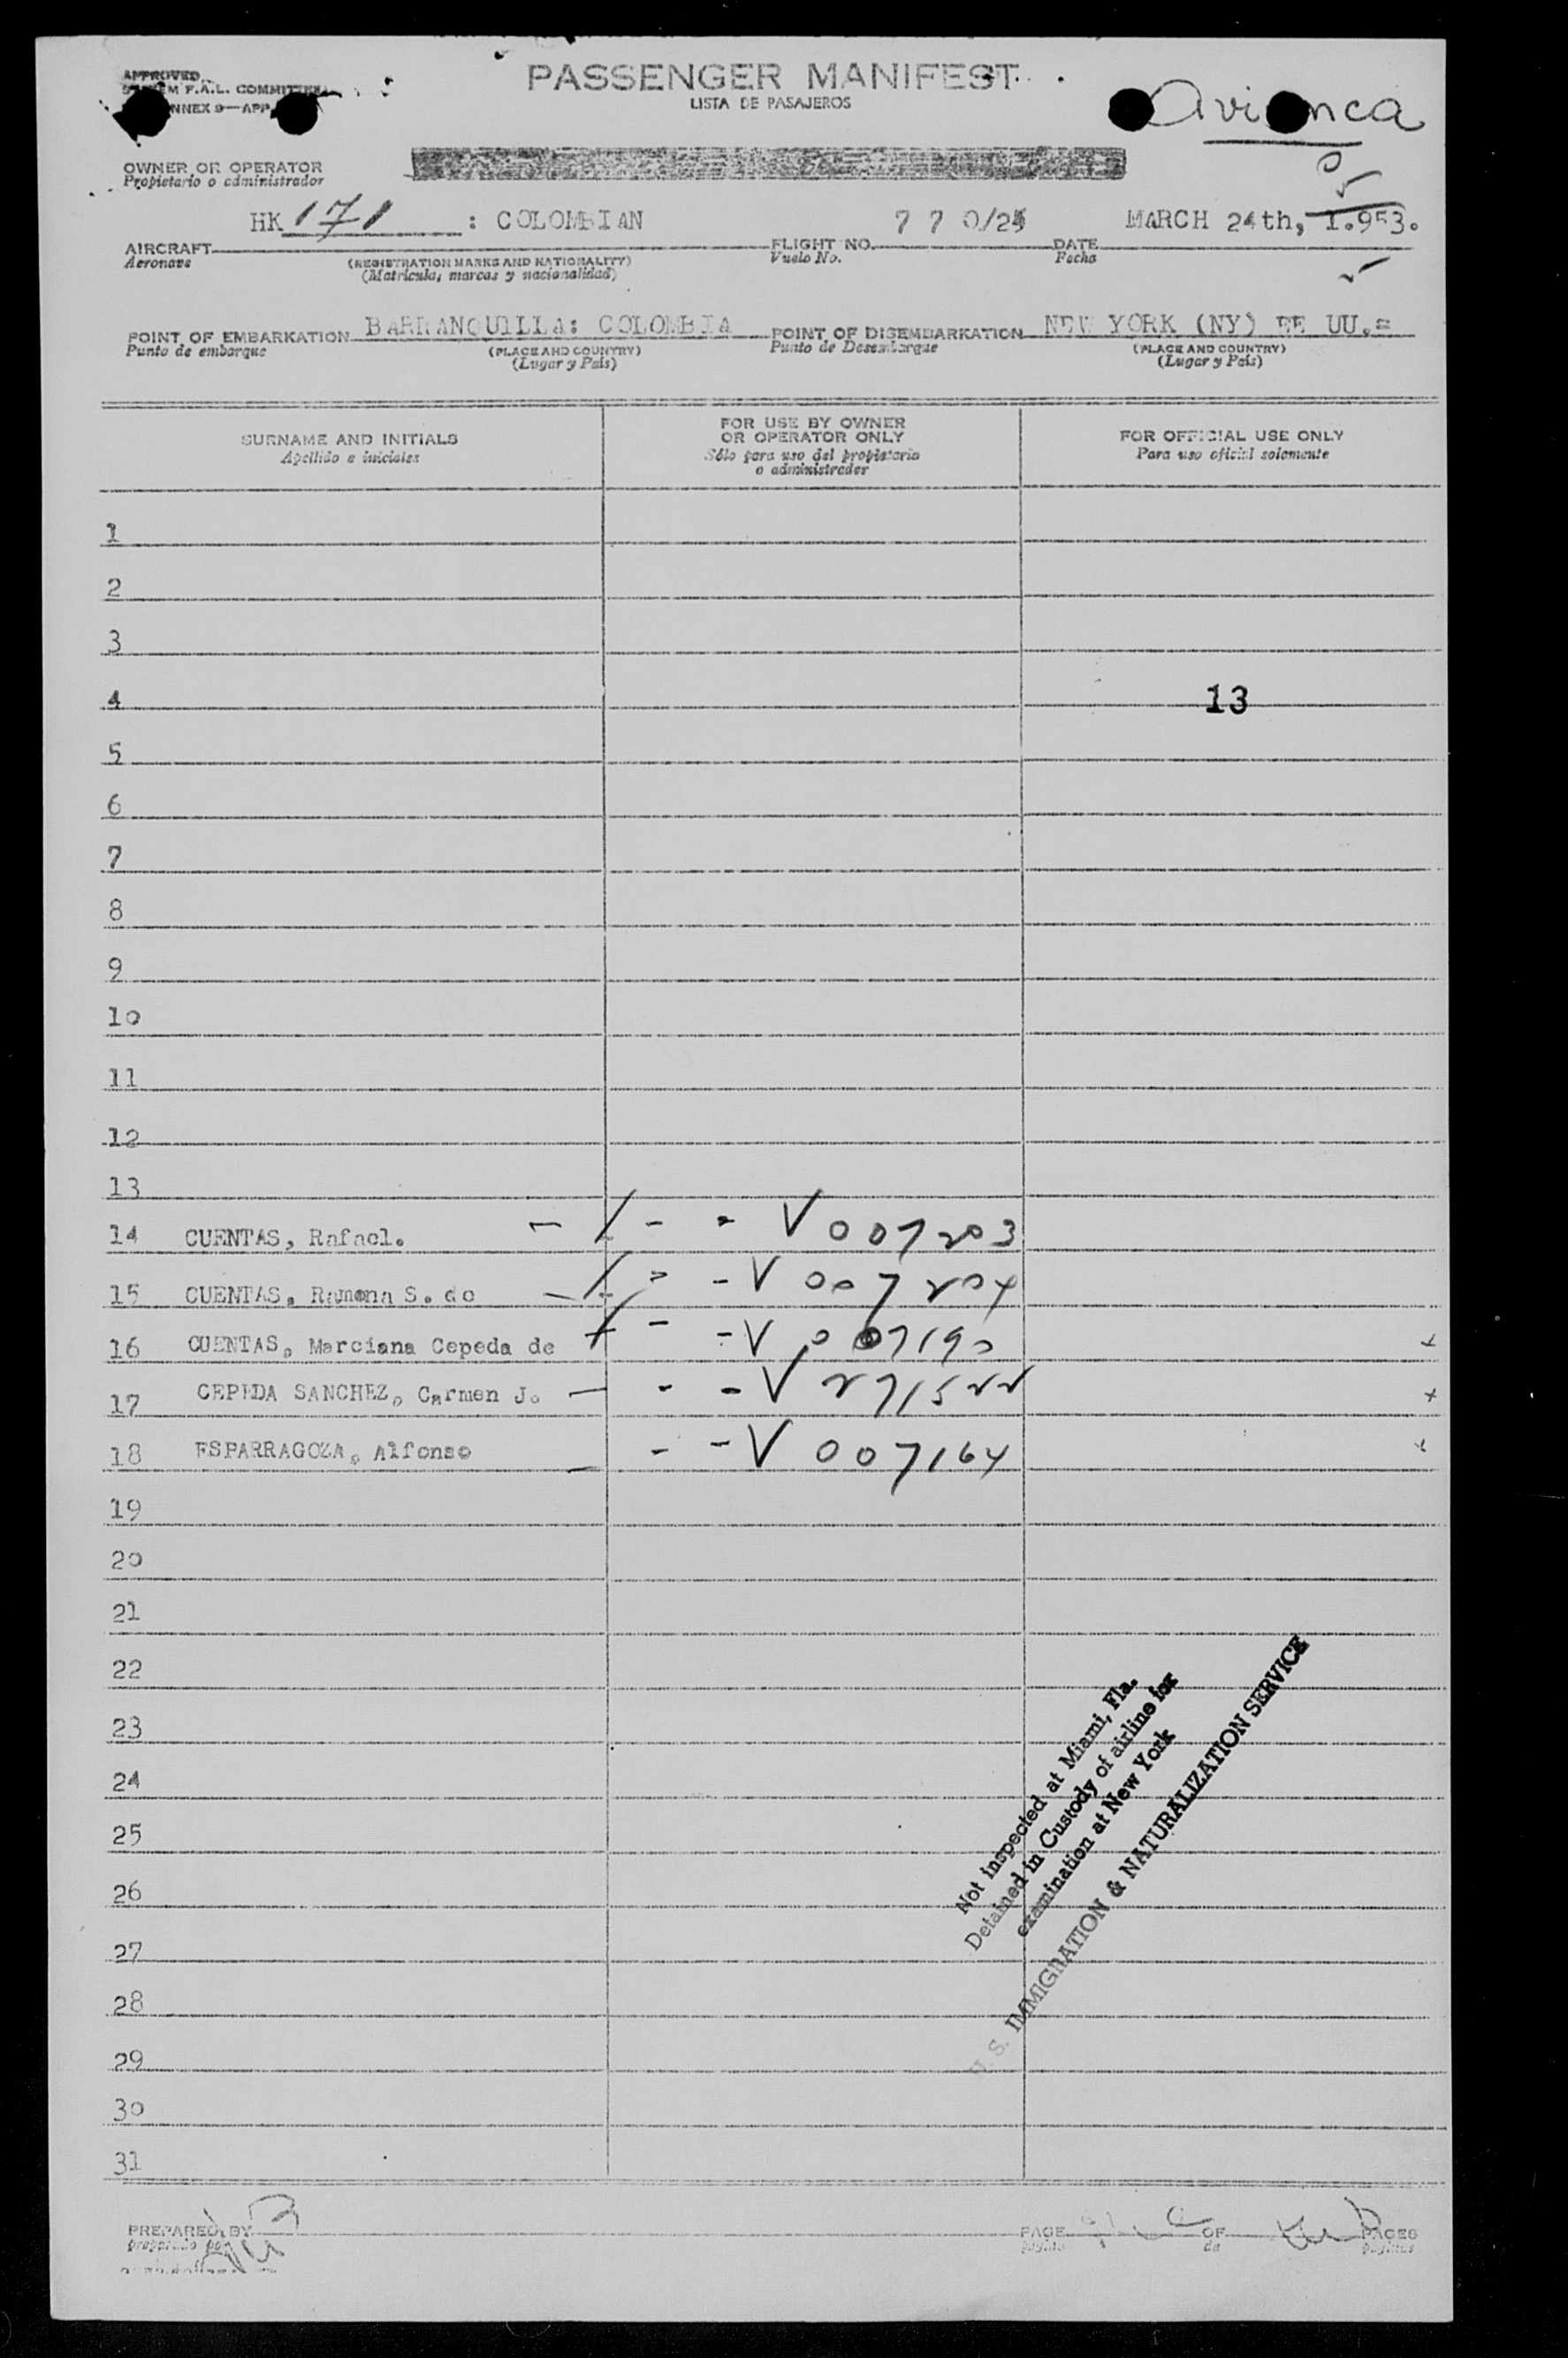 APPROVED
F.A.L. COMMITTEE
ANNEX 9—APP.
PASSENGER MANIFEST
LISTA DE PASAJEROS
Avianca
OWNER OR OPERATOR
Propietario o administrador
HK 171 : COLOMBIAN 770/25 MARCH 24th, 1.953.
AIRCRAFT FLIGHT NO. DATE
Aeronave (REGISTRATION MARKS AND NATIONALITY) Vuelo No. Fecha
(Matrícula, marcas y nacionalidad)
POINT OF EMBARKATION BARRANQUILLA: COLOMBIA POINT OF DISEMBARKATION NEW YORK (NY) EE UU.=
Punto de embarque (PLACE AND COUNTRY) Punto de Desembarque (PLACE AND COUNTRY)
(Lugar y País) (Lugar y País)
SURNAME AND INITIALS FOR USE BY OWNER OR OPERATOR ONLY FOR OFFICIAL USE ONLY
Apellido e iniciales Sólo para uso del propietario o administrador Para uso oficial solamente
1
2
3
4 13
5
6
7
8
9
10
11
12
13
14 CUENTAS, Rafael. - / - - V 007203
15 CUENTAS, Ramona S. de - / - - V 007204
16 CUENTAS, Marciana Cepeda de - - V 007190
17 CEPEDA SANCHEZ, Carmen J. - - - V
18 ESPARRAGOZA, Alfonso - - - V 007164
19
20
21
22
23
24
25
26
27
28
29
30
31
Not inspected at Miami, Fla.
Detained in Custody of airline for
examination at New York
U. S. IMMIGRATION & NATURALIZATION SERVICE
PREPARED BY PAGE OF PAGES
preparado por página de páginas